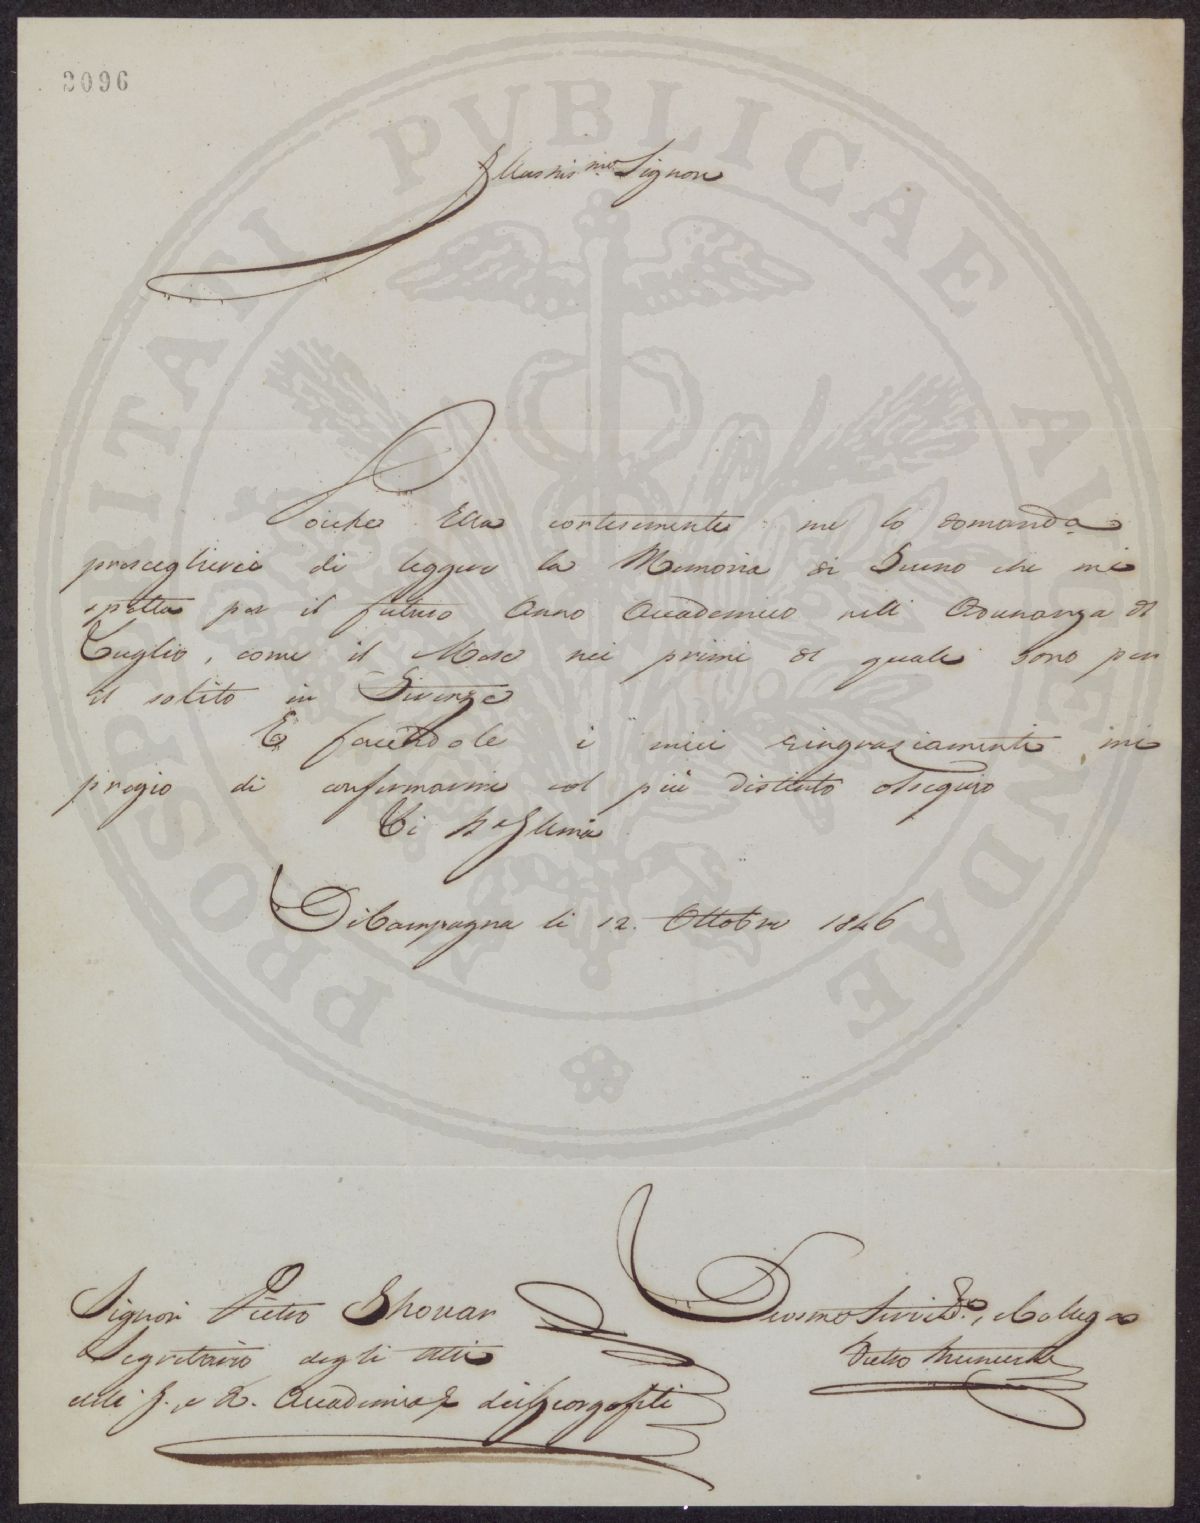 2096
PROSPERITATI PUBLICAE AUGENDAE
Illustris.mo Signore
Poiche Ella cortesemente me lo domanda
presceglierei di leggere la Memoria di Turno che mi
spetta per il futuro Anno Accademico nell' Adunanza di
Luglio, come il Mese nei primi del quale sono per
il solito in Firenze
E facendole i miei ringraziamenti mi
pregio di confermarmi col più distinto ossequio
Di
Di Campagna li 12. Ottobre 1846
Signor Pietro
Segretario degli Atti
dell' I. e R. Accademia dei Georgofili
Devomo Servite., e Collega
Pietro